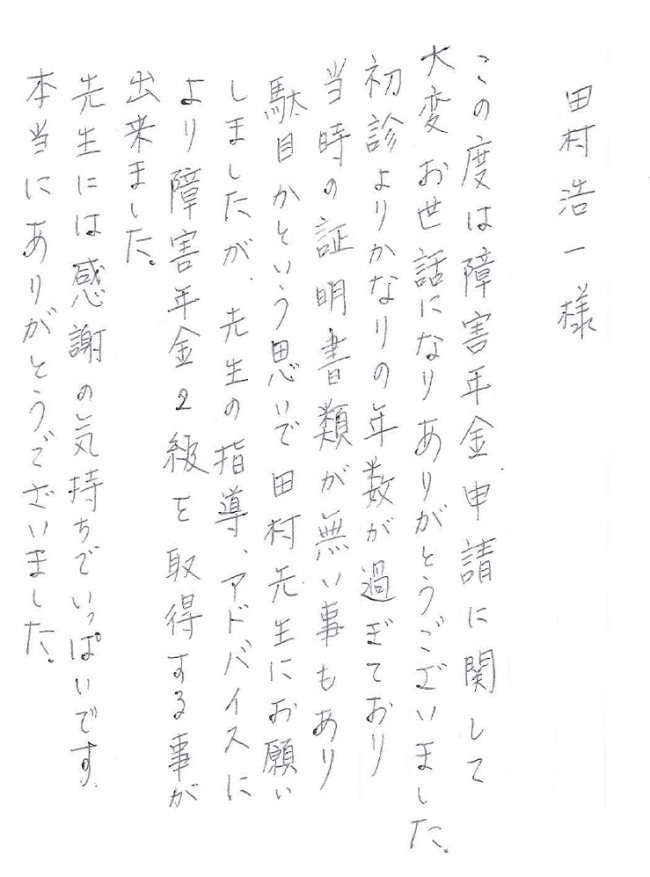 田村浩一様
この度は障害年金申請に関して
大変お世話になりありがとうございました。
初診よりかなりの年数が過ぎており
当時の証明書類が無い事もあり
駄目かという思いで田村先生にお願い
しましたが、先生の指導、アドバイスに
より障害年金2級を取得する事が
出来ました。
先生には感謝の気持ちでいっぱいです
本当にありがとうございました。